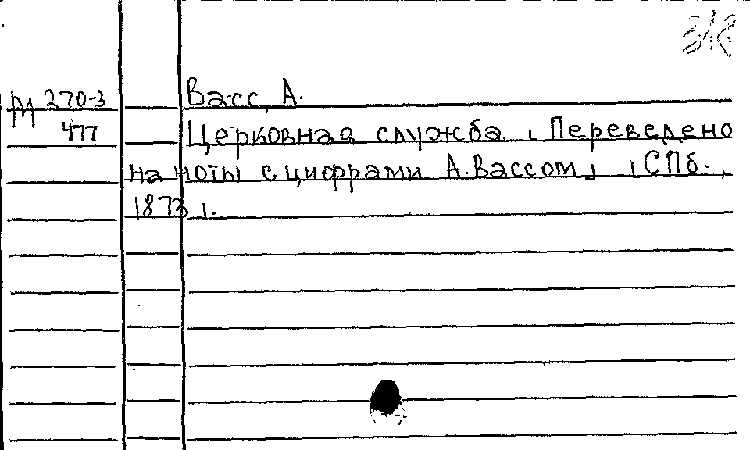 М 270-3
477
Васс, А.
Церковная служба. [Переведено
на ноты с цифрами А. Вассом], [СПб.,
1873].